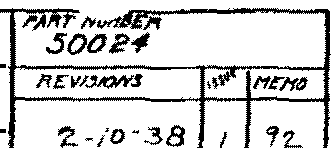 PART NUMBER
50024
REVISIONS ISSUE MEMO
2-10-38 1 92